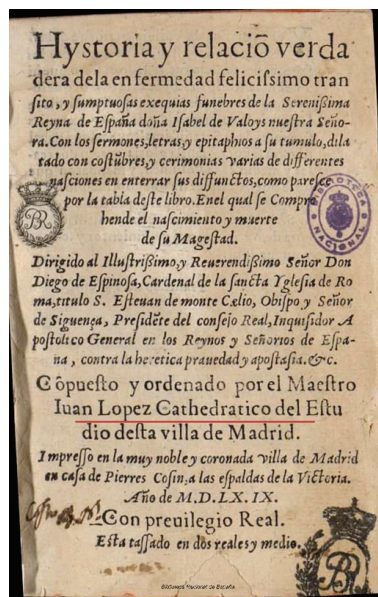 Hystoria y relaciõ verda
dera dela en fermedad felicissimo tran
sito, y sumptuosas exequias funebres de la Serenißima
Reyna de España doña Isabel de Valoys nuestra Seño-
ra. Con los sermones, letras, y epitaphios a su tumulo, dila
tado con costũbres, y cerimonias varias de differentes
nasciones en enterrar sus diffunctos, como paresce
por la tabla deste libro. Enel qual se Compre
hende el nascimiento y muerte
de su Magestad.
BR
BIBLIOTECA NACIONAL
Dirigido al Illustrißimo, y Reuerendißimo Señor Don
Diego de Espinosa, Cardenal de la sancta Yglesia de Ro
ma, titulo S. Esteuan de monte Cælio, Obispo, y Señor
de Siguença, Presidẽte del consejo Real, Inquisidor A
postolico General en los Reynos y Señorios de Espa-
ña, contra la heretica prauedad y apostasia. &c.
Cõpuesto y ordenado por el Maestro
Iuan Lopez Cathedratico del Estu
dio desta villa de Madrid.
Impresso en la muy noble y coronada villa de Madrid
en casa de Pierres Cosin, a las espaldas de la Victoria.
Año de M.D.LX.IX.
Con preuilegio Real.
Esta tassado en dos reales y medio.
BR
Biblioteca Nacional de España